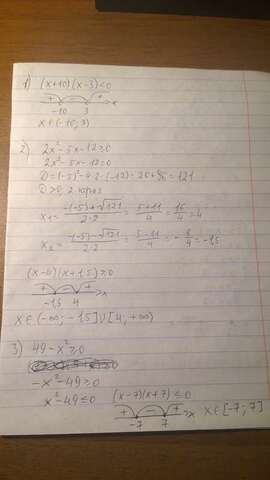 1) (x+10)(x-3)<0
+ - + x
-10 3
x∈(-10; 3)
2) 2x²-5x-12≥0
2x²-5x-12=0
D=(-5)²-4·2·(-12)=25+96=121
D>0, 2 корня
x₁ = -(-5)+√121 / 2·2 = 5+11 / 4 = 16 / 4 = 4
x₂ = -(-5)-√121 / 2·2 = 5-11 / 4 = -6 / 4 = -1,5
(x-4)(x+1,5)≥0
+ - + x
-1,5 4
x∈(-∞; -1,5]∪[4; +∞)
3) 49-x²≥0
-x²-49≥0
x²-49≤0 (x-7)(x+7)≤0
+ - + x x∈[-7; 7]
-7 7